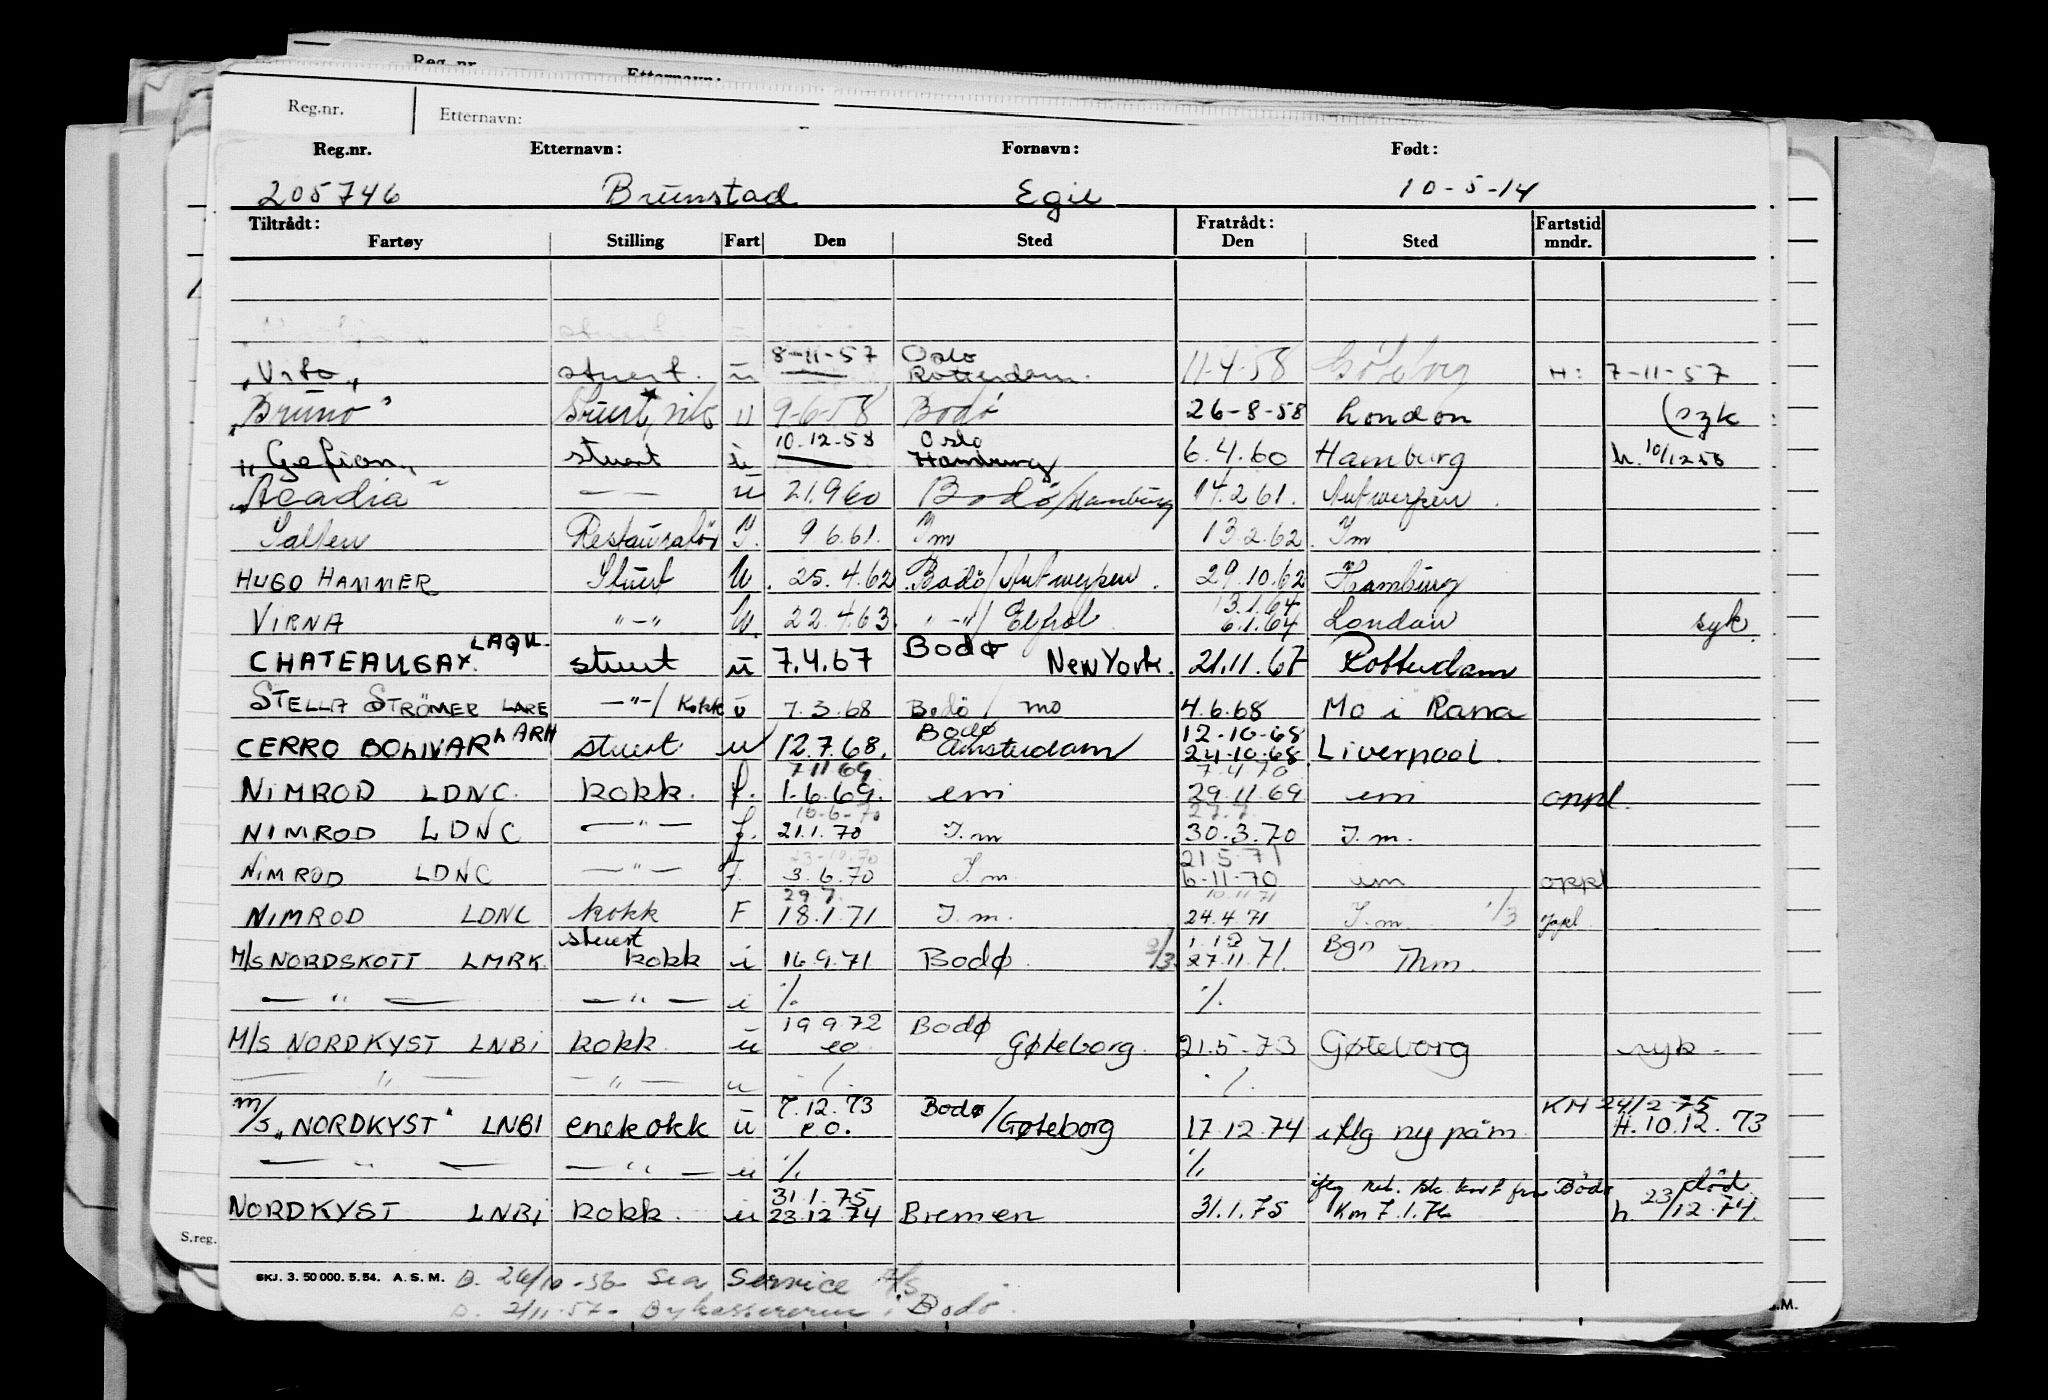 Reg.nr. Etternavn:
Reg.nr. Etternavn:
Reg.nr. Etternavn: Fornavn: Født:
205746 Brunstad Egil 10-5-14
Tiltrådt: Fratrådt: Fartstid
Fartøy Stilling Fart Den Sted Den Sted mndr.
8-11-57 Oslo
"Vito" stuert. u Rotterdam. 11-4-58 Göteborg H: 7-11-57
"Bruno" Stuert, u 9-6-58 Bodö 26-8-58 London (syk
10.12-58 Oslo
"Gefion" stuert u Hamburg 6.4.60 Hamburg h. 10/12 58
"Acadia" — — u 21.9 60 Bodö/Hamburg 14.2 61. Antwerpen.
Salten Restauratör I. 9 6.61. Im 13.2.62 Im
HUGO HAMMER Stuert U. 25.4.62 Bodö/Antwerpen. 29.10.62 Hamburg
13.1.64
VIRNA "-" U. 22.4.63. "-"/ 6.1.64 London syk.
CHATEAUGAY. LAQU. stuert u 7.4.67 Bodø New York. 21.11.67 Rotterdam
STELLA STRÖMER LARE —"—/ Kokk u 7.3.68 Bodö / mo 4.6.68 Mo i Rana
Bodø 12-10-68
CERRO BOLIVAR LARH stuert u 12.7.68. Amsterdam 24-10-68 Liverpool.
7.11 69 7.4.70
NIMROD LDNC. kokk. f. 1.6.69. em 29.11.69 em oppl.
10-6-70 27.7.
NIMROD LDNC — " — f. 21.1.70 I.m 30.3.70 I.m.
23-10.70 21.5.71
NIMROD LDNC — " — f. 3.6.70 I.m. 6-11-70 em oppl
29.7. 10.11.71
NIMROD LDNC kokk F 18.1.71 I.m. 24.4.71 I.m. 1/3
stuert 1.12 Bgn
M/S NORDSKOTT LMRK. kokk i 16.9.71 Bodø 2/3 27.11.71. Thm.
— " — — " — i ·/. ·/.
19 9.72 Bodø
M/S NORDKYST LNBI kokk. u eo. Gøteborg. 21.5-73 Gøteborg syk.
— " — — " — u ·/. ·/.
7.12.73 Bodø KM 24/2-75
m/s "NORDKYST" LNBI enekokk u e.o. /Gøteborg 17.12.74 iflg ny påm. H. 10.12.73
— " — — " — u ·/. ·/.
31.1.75 iflg fra Bodø död.
NORDKYST LNBI kokk. u 23.12.74 Bremen 31.1.75 Km 7.1.76 h. 23/12.74.
S.reg.
SKJ. 3. 50 000. 5. 54. A. S. M. D. 26/10-56 Sea Service A/S
D. 2/11-57- Bykassereren i Bodö.